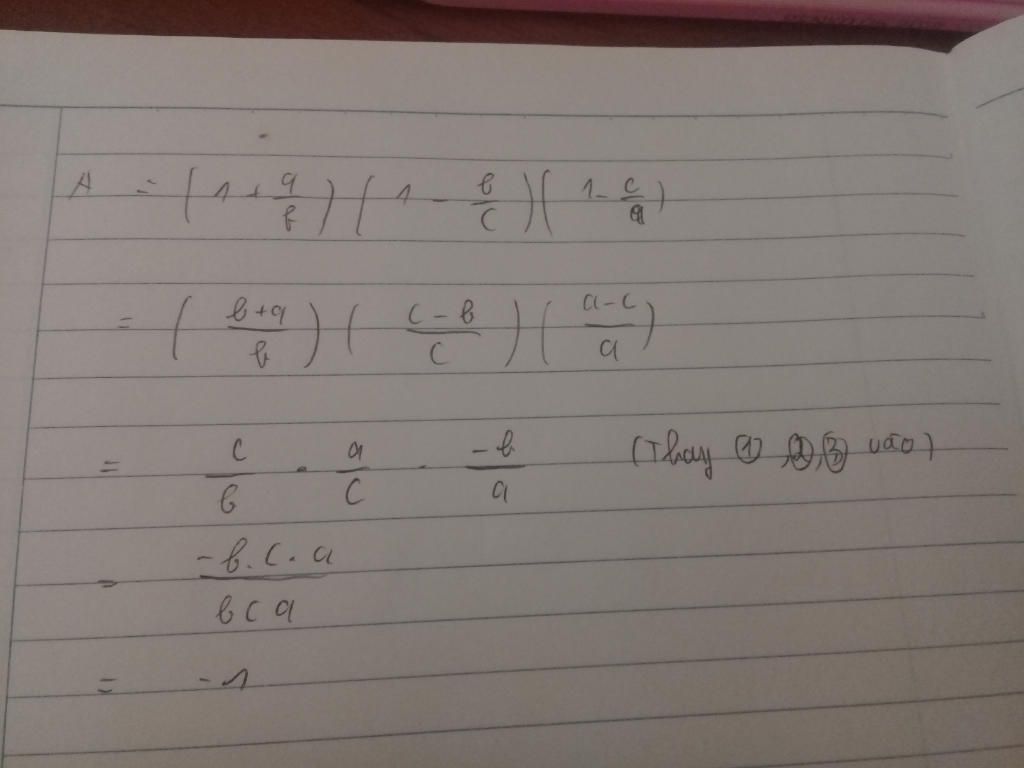 A = (1 + a/b)(1 - b/c)(1 - c/a)
= (b+a/b)(c-b/c)(a-c/a)
= c/b . a/c . -b/a (Thay ①, ②, ③ vào)
= -b.c.a/bca
= -1